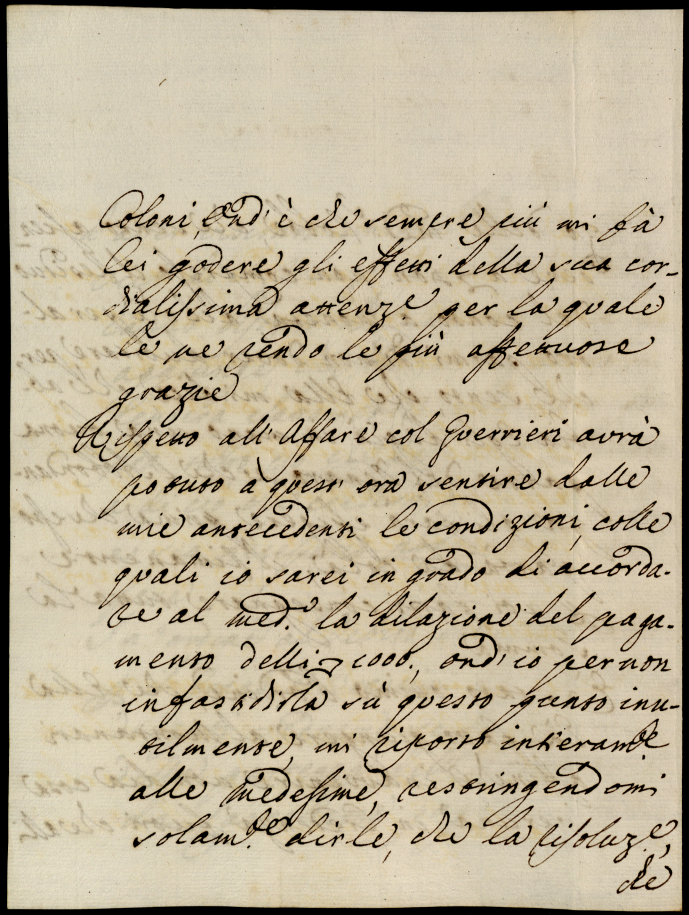 Coloni, Ond' è che sempre più mi fà
lei godere gli effetti della sua cor-
dialissima attenz.e per la quale
le ne rendo le più affettuose
grazie
Rispetto all' Affare col Guerrieri avrà
potuto à quest' ora sentire dalle
mie antecedenti le condizioni, colle
quali io sarei in grado di accorda-
re al med.o la dilazione del paga-
mento delli 1000., ond' io per non
infastidirla sù questo punto inu-
tilmente, mi riporto interam.te
alle medesime, restringendomi
solam.te à dirle, che la risoluz.e,
che